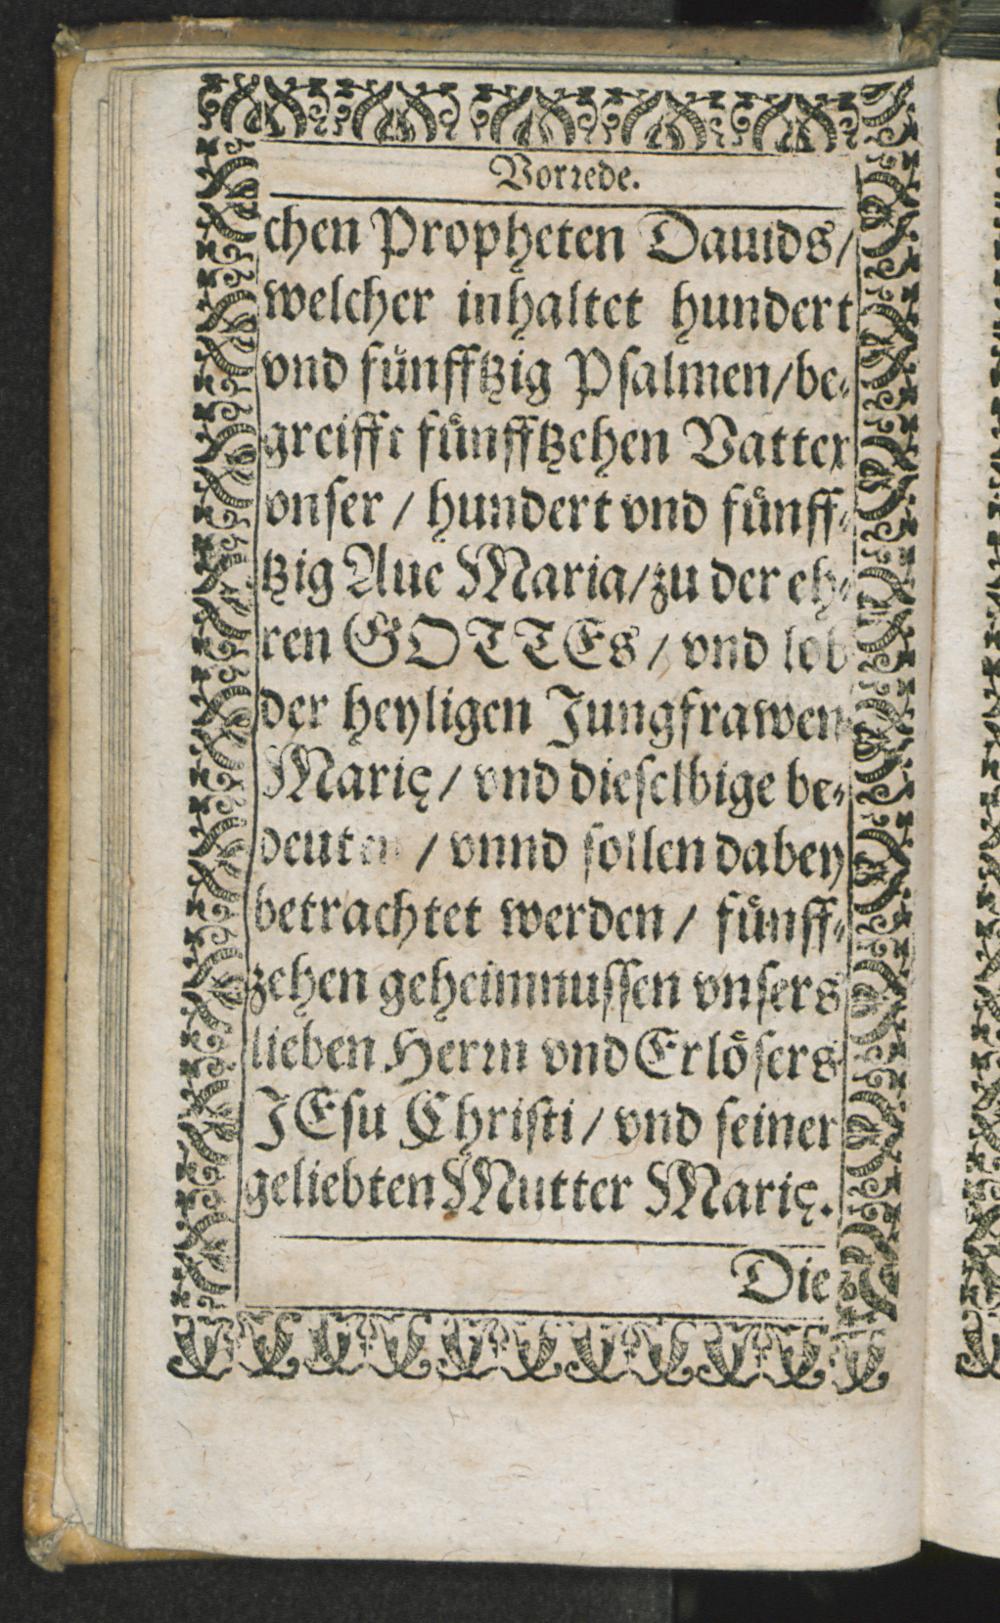 Vorrede.
chen Propheten Dauids/
welcher inhaltet hundert
vnd fünfftzig Psalmen/be-
greiffe fünfftzehen Vatter
vnser / hundert vnd fünff-
tzig Aue Maria/zu der eh-
ren GOTTEs / vnd lob
der heyligen Jungfrawen
Marię / vnd dieselbige be-
deuten / vnnd sollen dabey
betrachtet werden / fünff-
zehen geheimnussen vnsers
lieben Herrn vnd Erlösers
JEsu Christi / vnd seiner
geliebten Mutter Marię.
Die